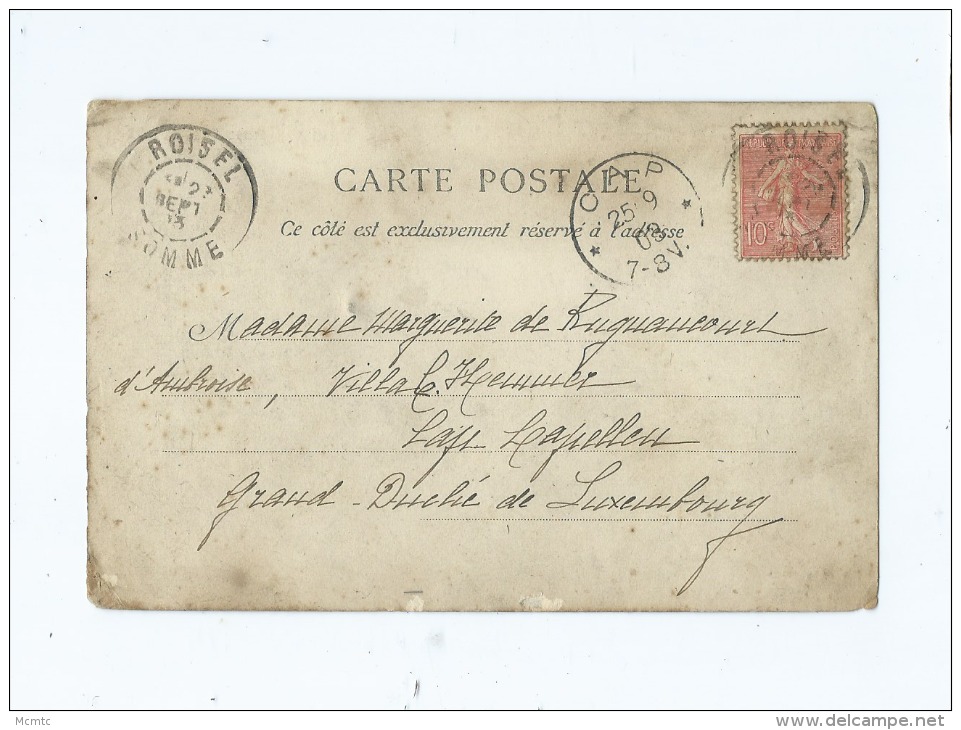 ROISEL
SEPT
SOMME
CARTE POSTALE
CAP
25 9
03
7-8 V.
ROISEL
10c
Ce côté est exclusivement réservé à l'adresse
Madame Marguerite de
d'Ambroise, Villa C. Hemmer
Cap Capellen
Grand-Duché de Luxembourg
Mcmtc
www.delcampe.net